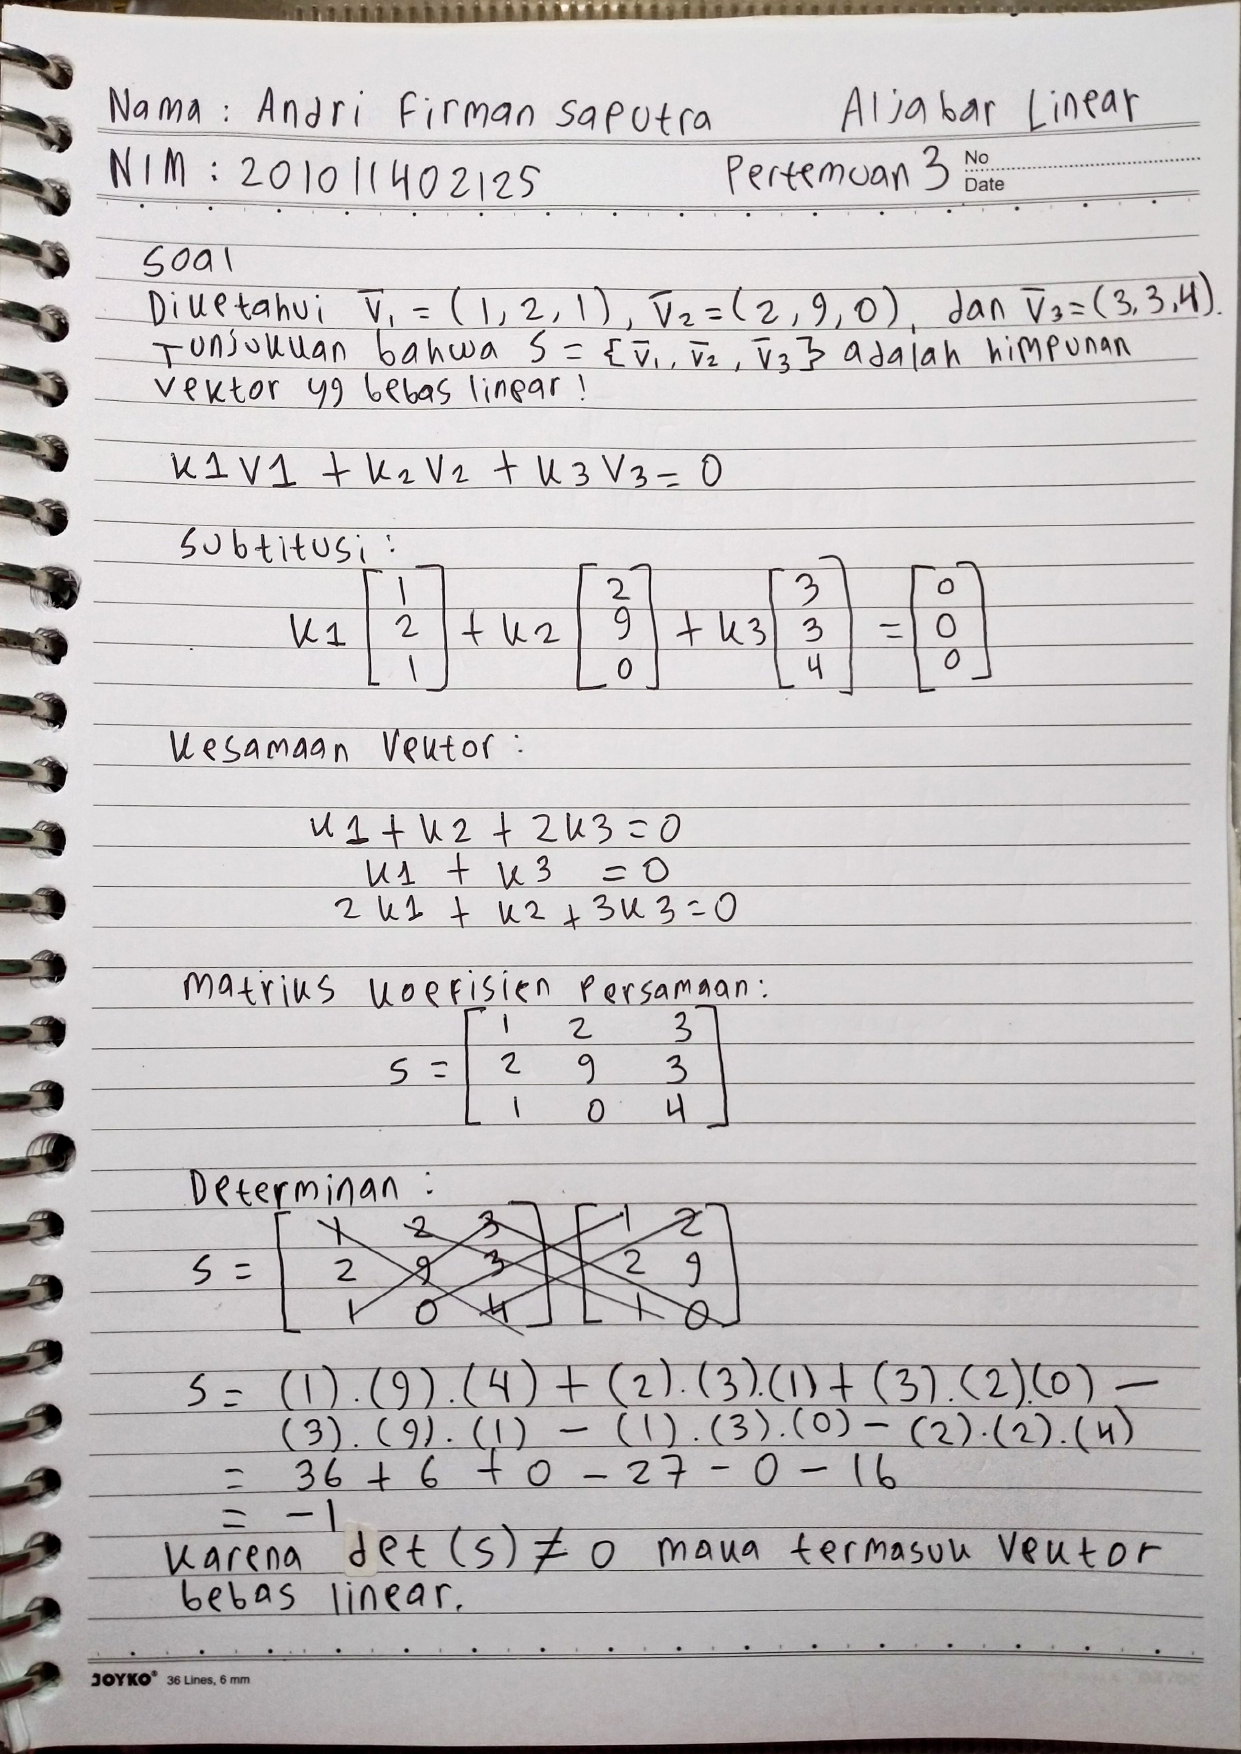 Nama : Andri Firman Saputra Aljabar Linear
NIM : 201011402125 Pertemuan 3 No
Date
Soal
Diketahui v̅₁ = (1, 2, 1), v̅₂ = (2, 9, 0), dan v̅₃ = (3, 3, 4).
Tunjukkan bahwa S = {v̅₁, v̅₂, v̅₃} adalah himpunan
vektor yg bebas linear!
k1 v1 + k2 v2 + k3 v3 = 0
Subtitusi :
k1 [1 2 1] + k2 [2 9 0] + k3 [3 3 4] = [0 0 0]
Kesamaan Vektor :
k1 + k2 + 2k3 = 0
k1 + k3 = 0
2k1 + k2 + 3k3 = 0
Matriks koefisien Persamaan :
1 2 3
S = 2 9 3
1 0 4
Determinan :
1 2 3 1 2
S = 2 9 3 2 9
1 0 4 1 0
S = (1).(9).(4) + (2).(3).(1) + (3).(2)(0) −
(3).(9).(1) − (1).(3).(0) − (2).(2).(4)
= 36 + 6 + 0 − 27 − 0 − 16
= −1
Karena det (S) ≠ 0 maka termasuk Vektor
bebas linear.
JOYKO® 36 Lines, 6 mm